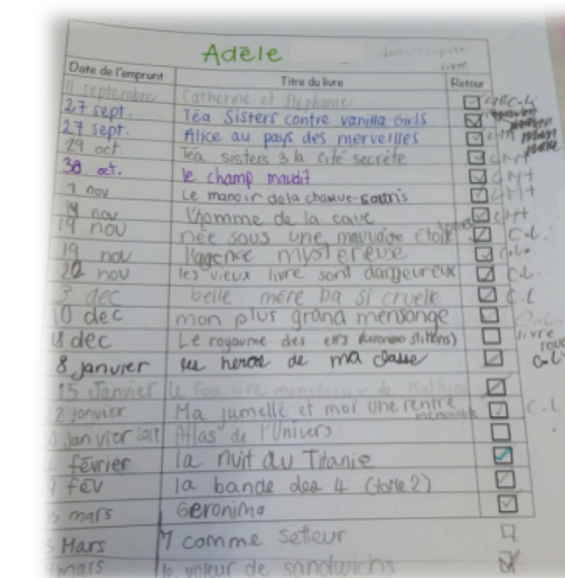 Adèle
Date de l'emprunt Titre du livre Retour
11 septembre Catherine et Stéphanie C.L.
27 sept. Téa Sisters contre vanilla Girls
27 sept. Alice au pays des merveilles
29 oct. Téa sisters 3 la cité secrète
30 oct. le champ maudit
7 nov Le manoir de la chauve-souris
14 nov l'homme de la cave
19 nov née sous une mauvaise étoile C.L.
19 nov l'agence mystereuse C.L.
20 nov les vieux livre sont dangeureux C.L.
3 dec belle mère pa si cruelle C.L
10 dec mon plus grand mensonge C.L
18 dec Le royaume des elfs livre
8 janvier heros de ma classe C.L
15 Janvier le fou rire de
22 janvier Ma jumelle et moi une rentré C.L
janvier Atlas de l'Univers
février la nuit du Titanic
fév la bande des 4 (tome 2)
mars Geronimo
Mars 7 comme
mars le voleur de sandwichs